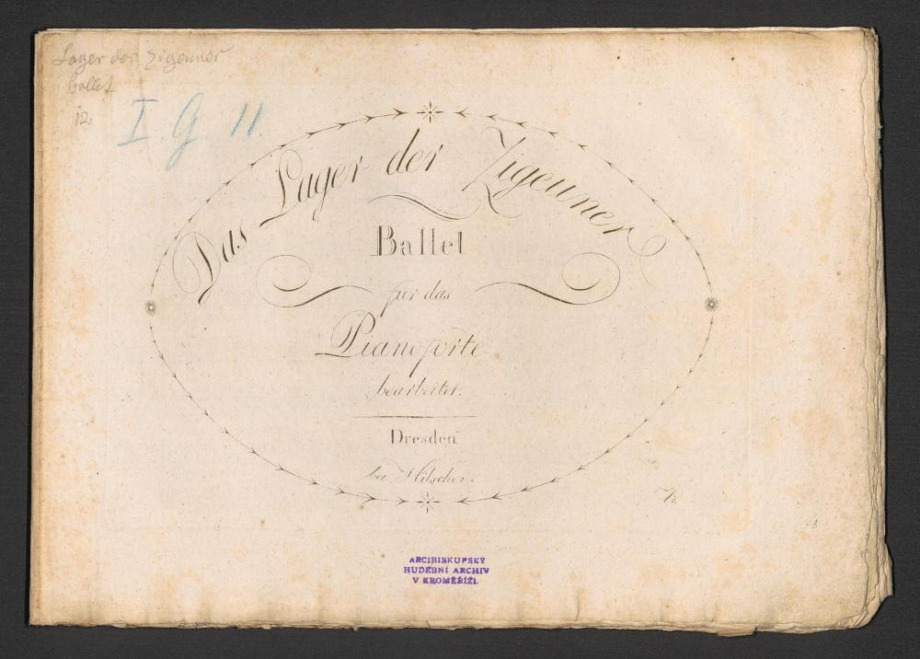 Lager der Zigeuner
ballet
12.
I G 11.
Das Lager der Zigeuner
Ballet
für das
Pianoforte
bearbeitet.
Dresden
bei Hilscher.
ARCIBISKUPSKÝ
HUDEBNÍ ARCHIV
V KROMĚŘÍŽI.